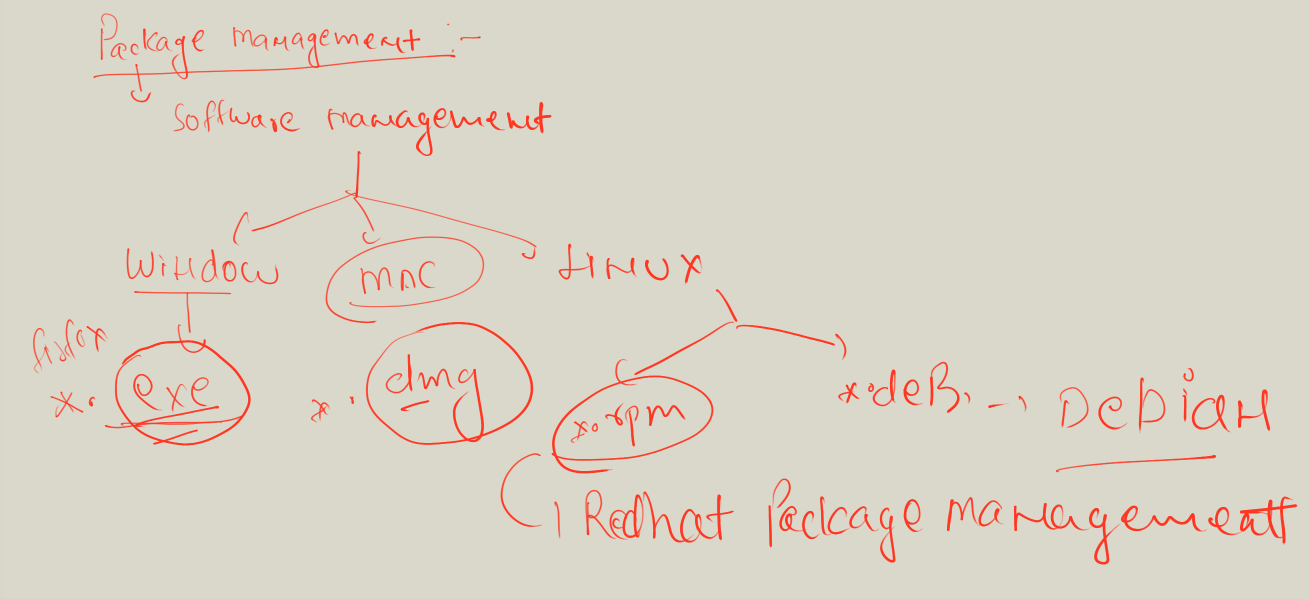 Package management :-
Software management
Window
MAC
LINUX
firfox
*. exe
*. dmg
*.rpm
*.deB. -> DeBian
Redhat Package management